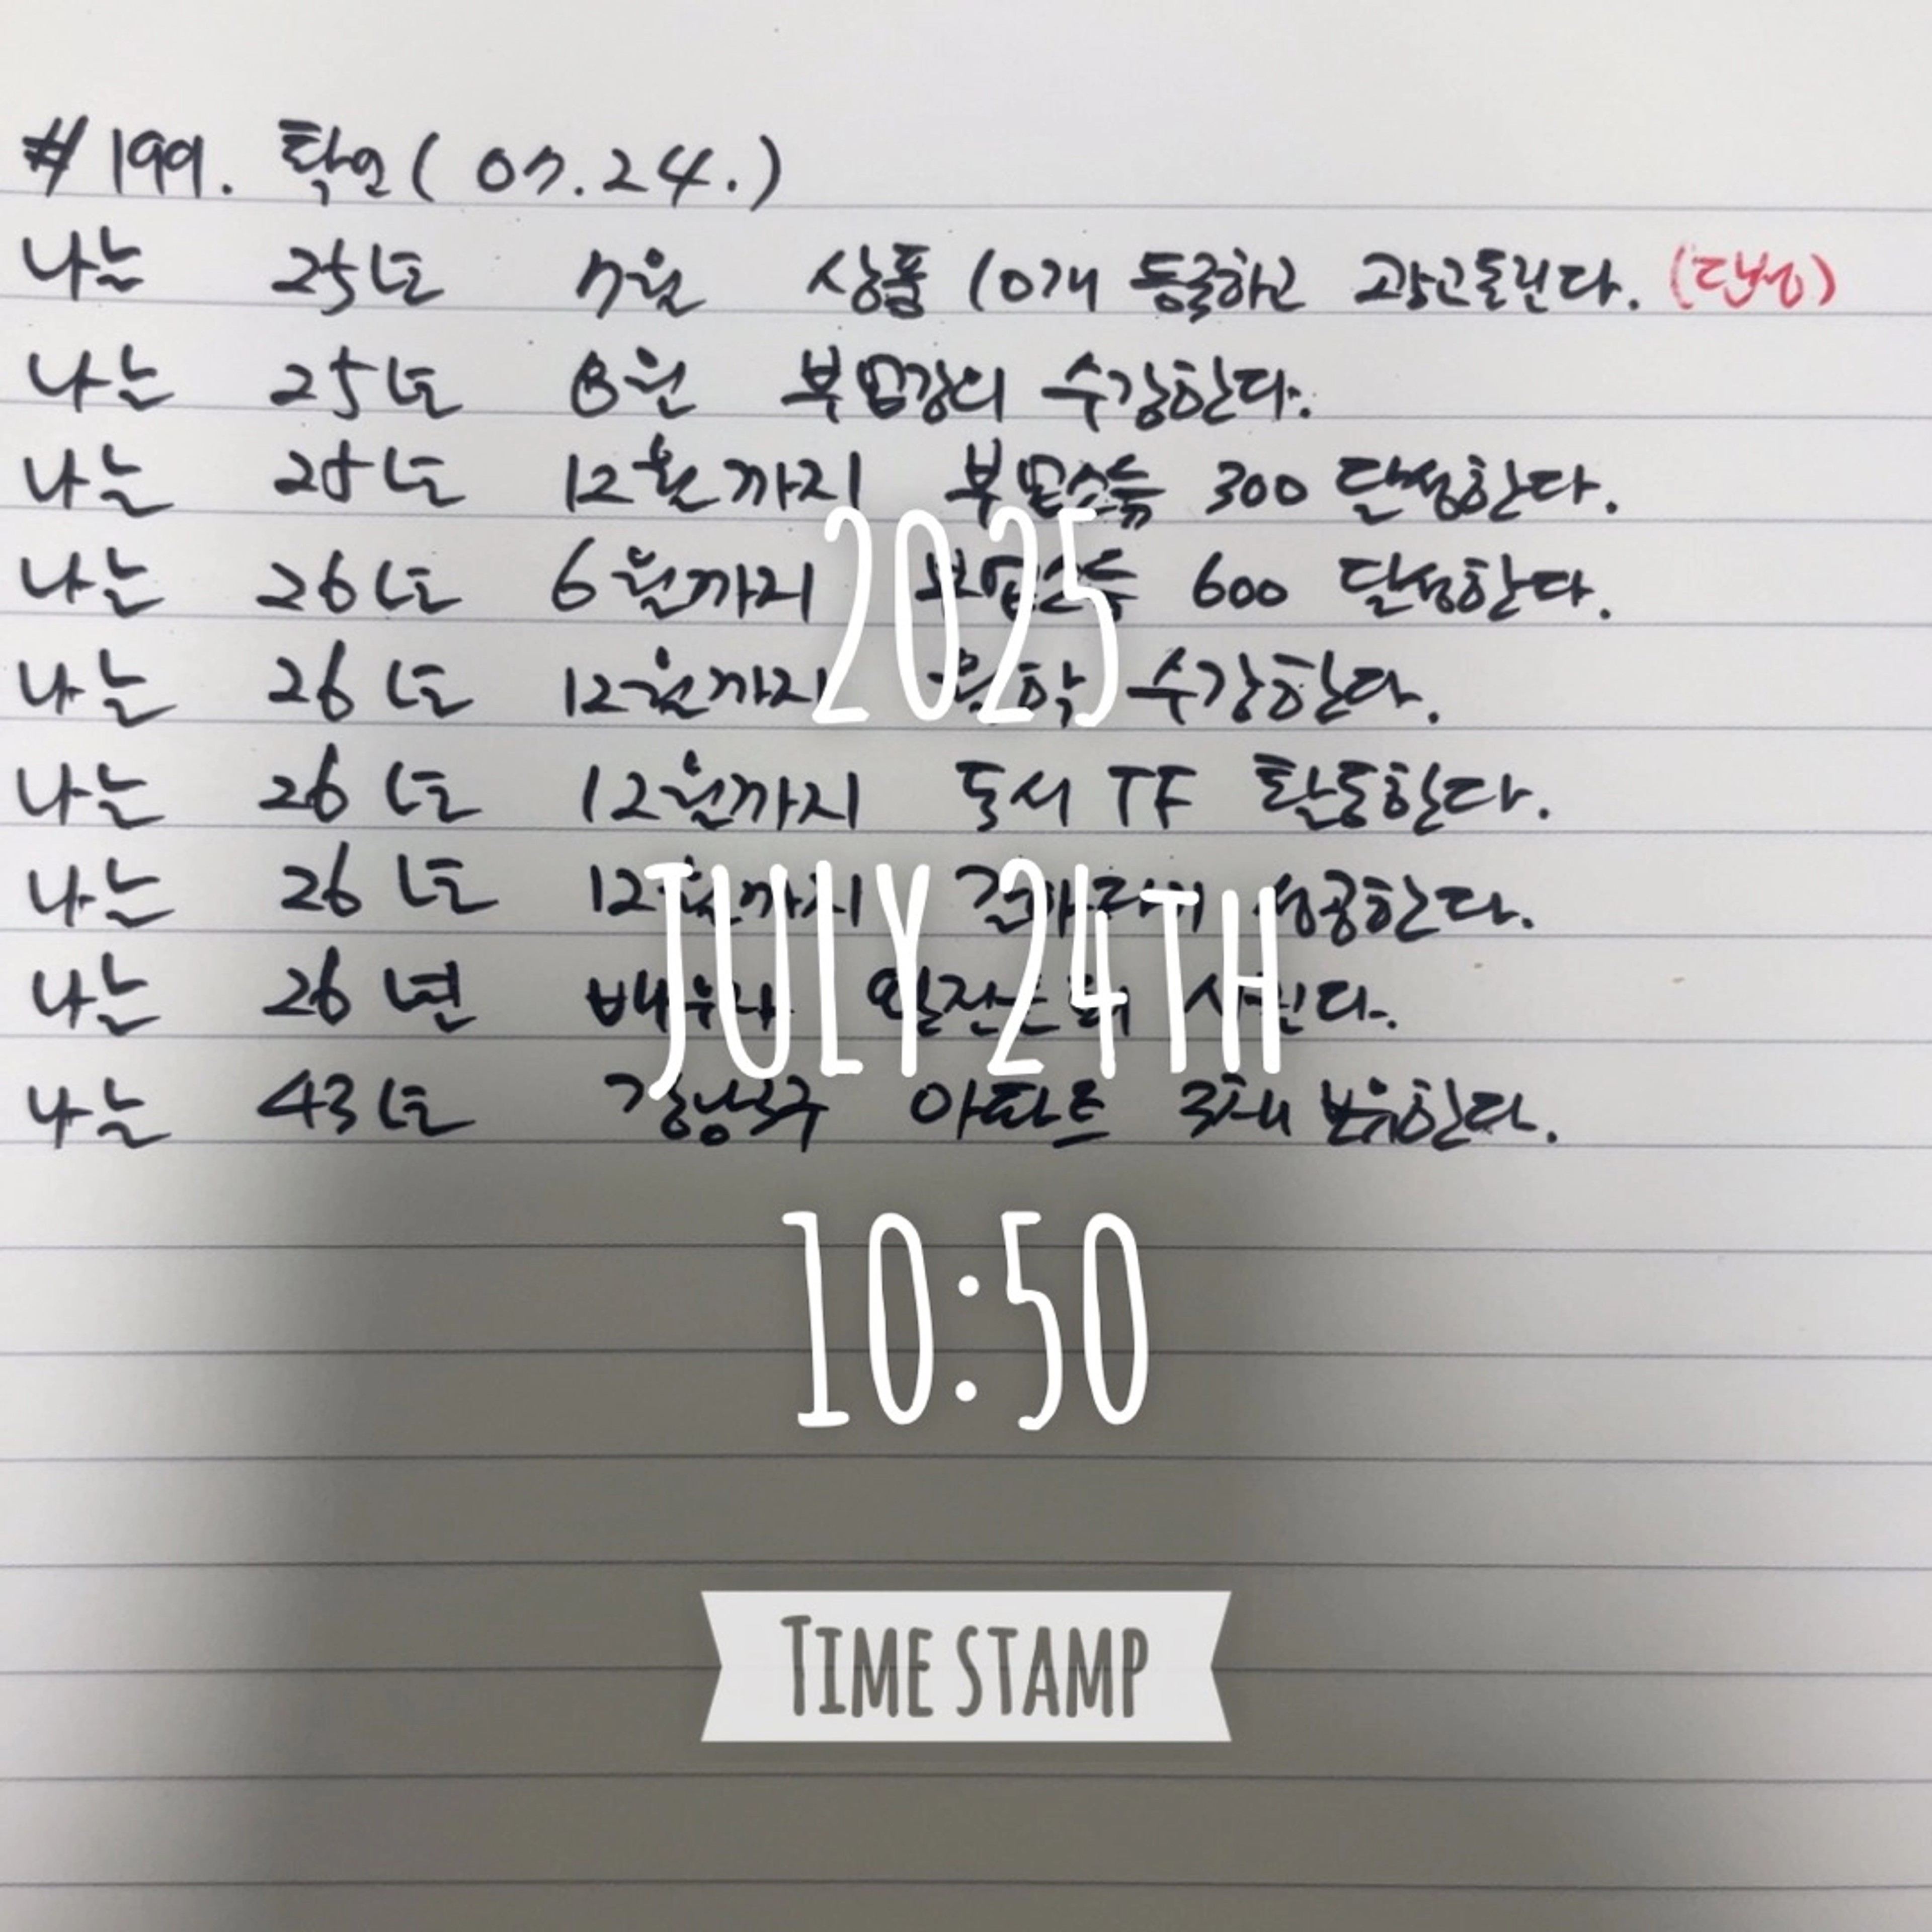 #199. 확언 (07.24.)
나는 25년 7월 상품 10개 등록하고 광고돌린다. (달성)
나는 25년 8월 부업강의 수강한다.
나는 25년 12월까지 부업소득 300 달성한다.
나는 26년 6월까지 부업소득 600 달성한다.
나는 26년 12월까지 수강한다.
나는 26년 12월까지 독서 TF 활동한다.
나는 26년 12월까지 성공한다.
나는 26년
나는 43년 강남3구 아파트 3채 보유한다.
2025
JULY 24TH
10:50
TIME STAMP